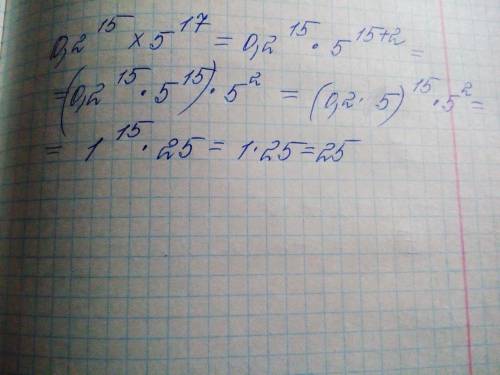 0,2¹⁵ × 5¹⁷ = 0,2¹⁵ · 5¹⁵⁺² =
= (0,2¹⁵ · 5¹⁵) · 5² = (0,2 · 5)¹⁵ · 5² =
= 1¹⁵ · 25 = 1 · 25 = 25